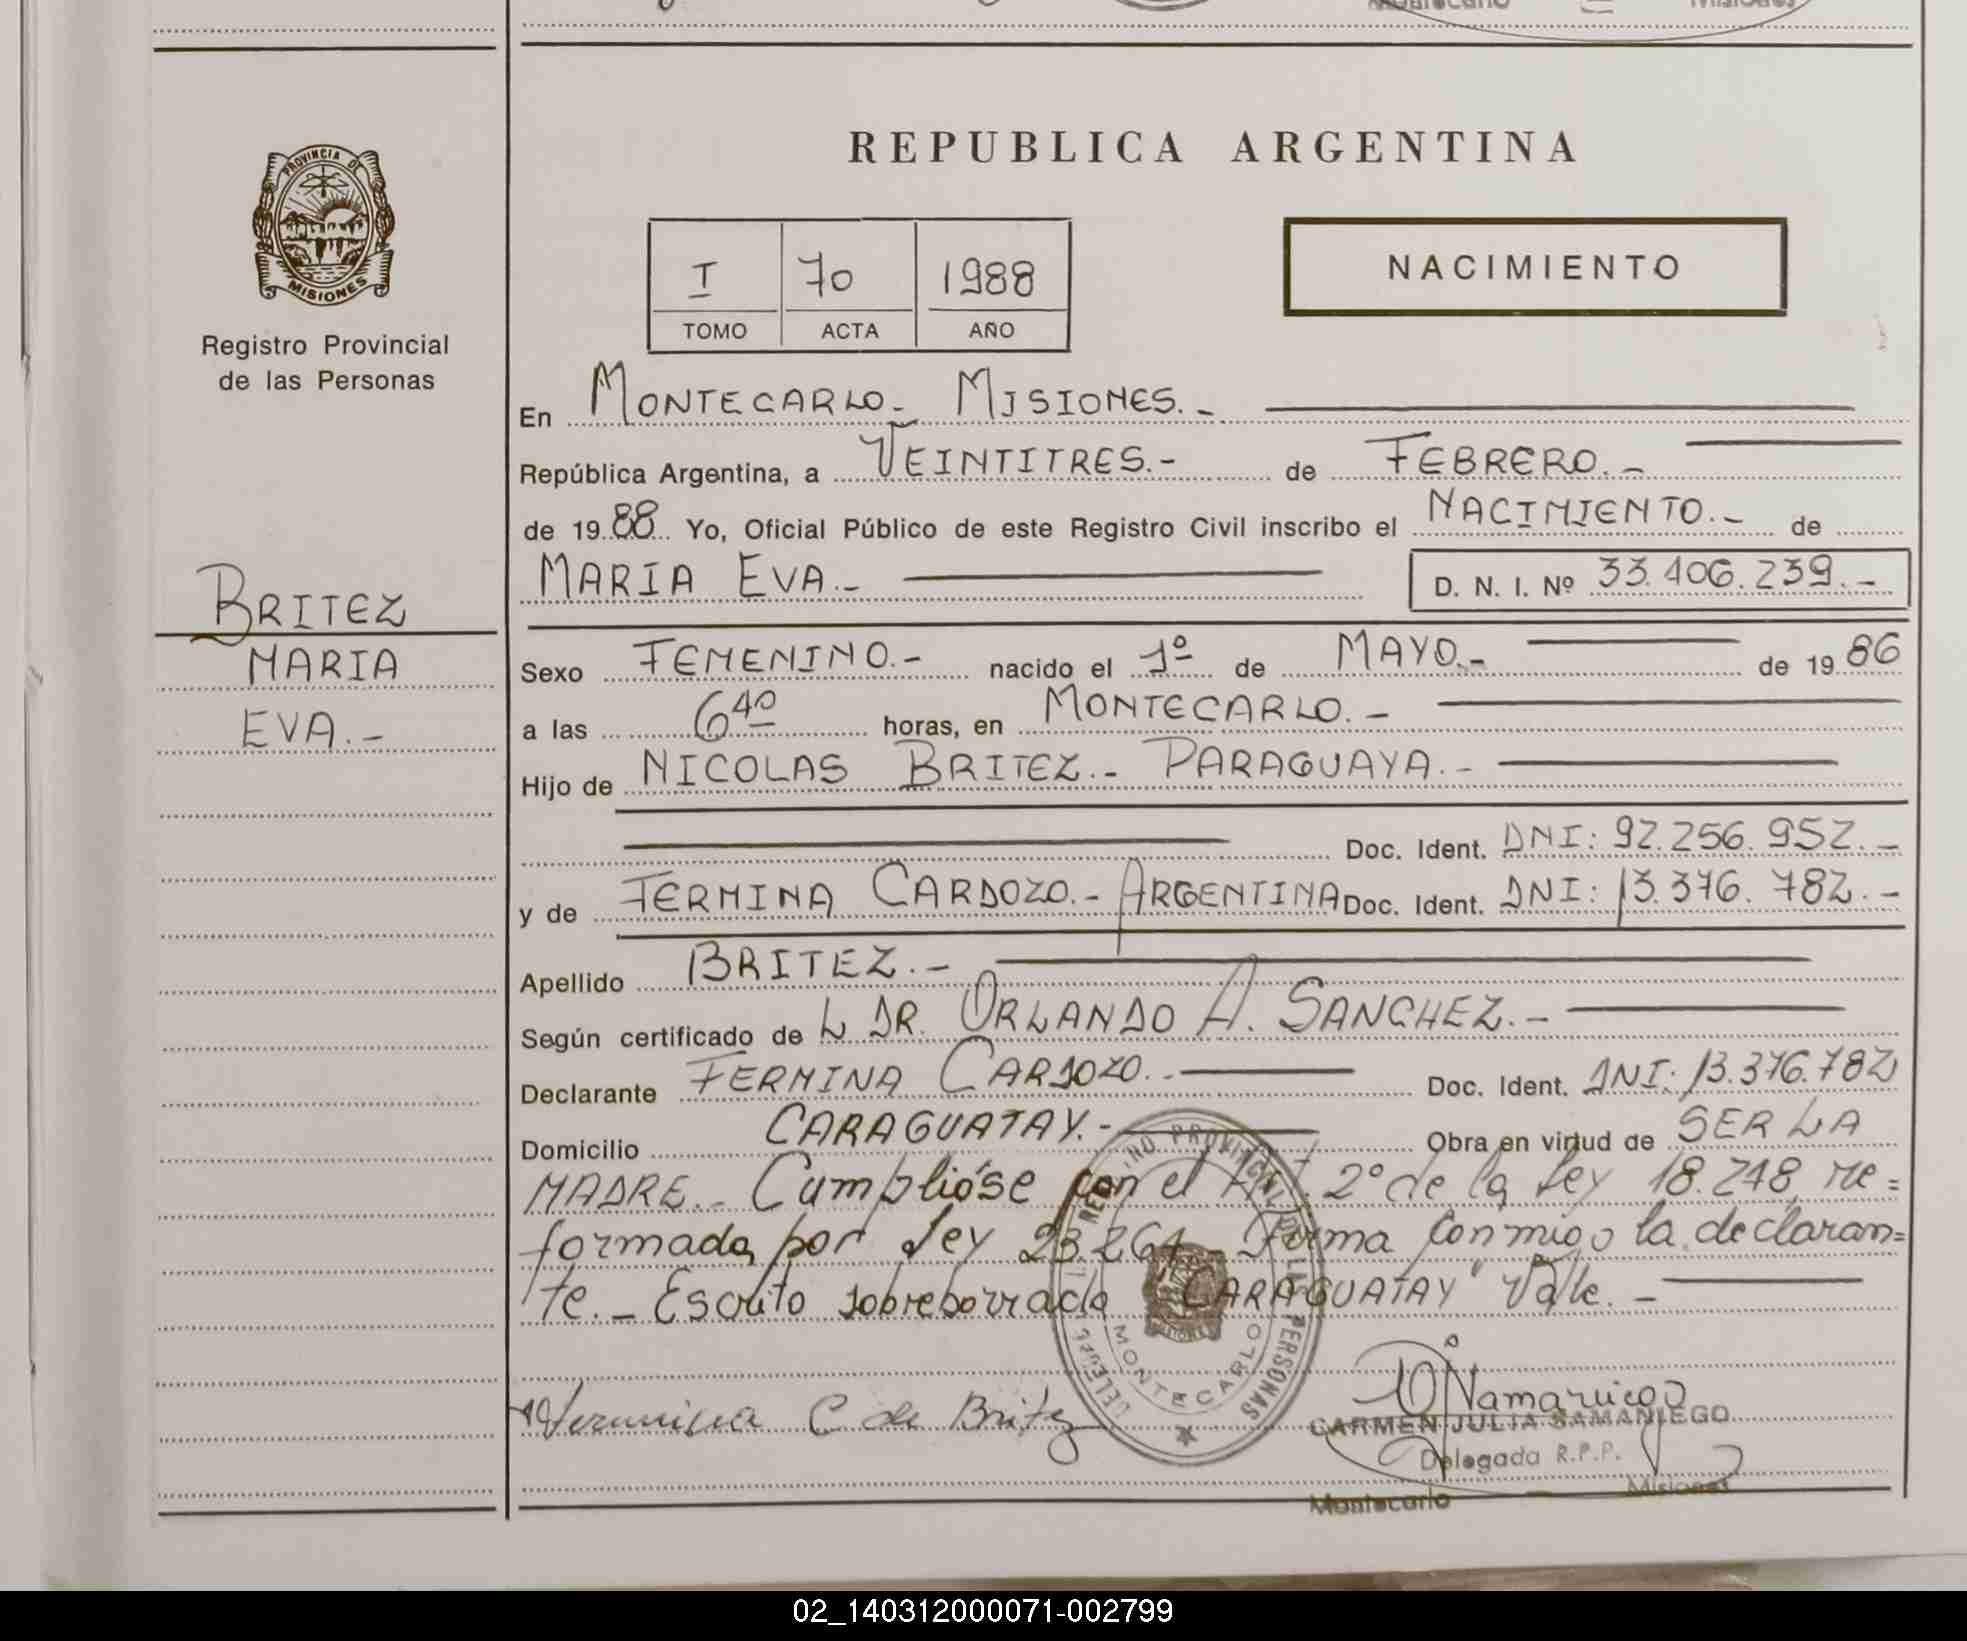 REPUBLICA ARGENTINA
PROVINCIA DE
MISIONES
Registro Provincial
de las Personas
I 70 1988
TOMO ACTA AÑO
NACIMIENTO
En MONTECARLO- MISIONES.-
República Argentina, a VEINTITRES.- de FEBRERO.-
de 1988 Yo, Oficial Público de este Registro Civil inscribo el NACIMIENTO.- de
MARIA EVA.- D. N. I. Nº 33.406.239.-
BRITEZ
MARIA
EVA.-
Sexo FEMENINO.- nacido el 1º de MAYO.- de 1986
a las 6 40 horas, en MONTECARLO.-
Hijo de NICOLAS BRITEZ.- PARAGUAYA.-
Doc. Ident. DNI: 92.256.952.-
y de FERMINA CARDOZO.- ARGENTINA Doc. Ident. DNI: 13.376.782.-
Apellido BRITEZ.-
Según certificado de L DR. ORLANDO A. SANCHEZ.-
Declarante FERMINA CARDOZO.- Doc. Ident. DNI: 13.376.782
Domicilio CARAGUATAY.- Obra en virtud de SER LA
MADRE.- Cumplióse con el Art. 2º de la Ley 18.248, re=
formada por Ley 23.264.- Firma conmigo la declaran=
te.- Escrito sobreborrado "CARAGUATAY" Vale.-
MONTECARLO
C de Britez
CARMEN JULIA SAMANIEGO
Delegada R.P.P.
Montecarlo Misiones
02_140312000071-002799